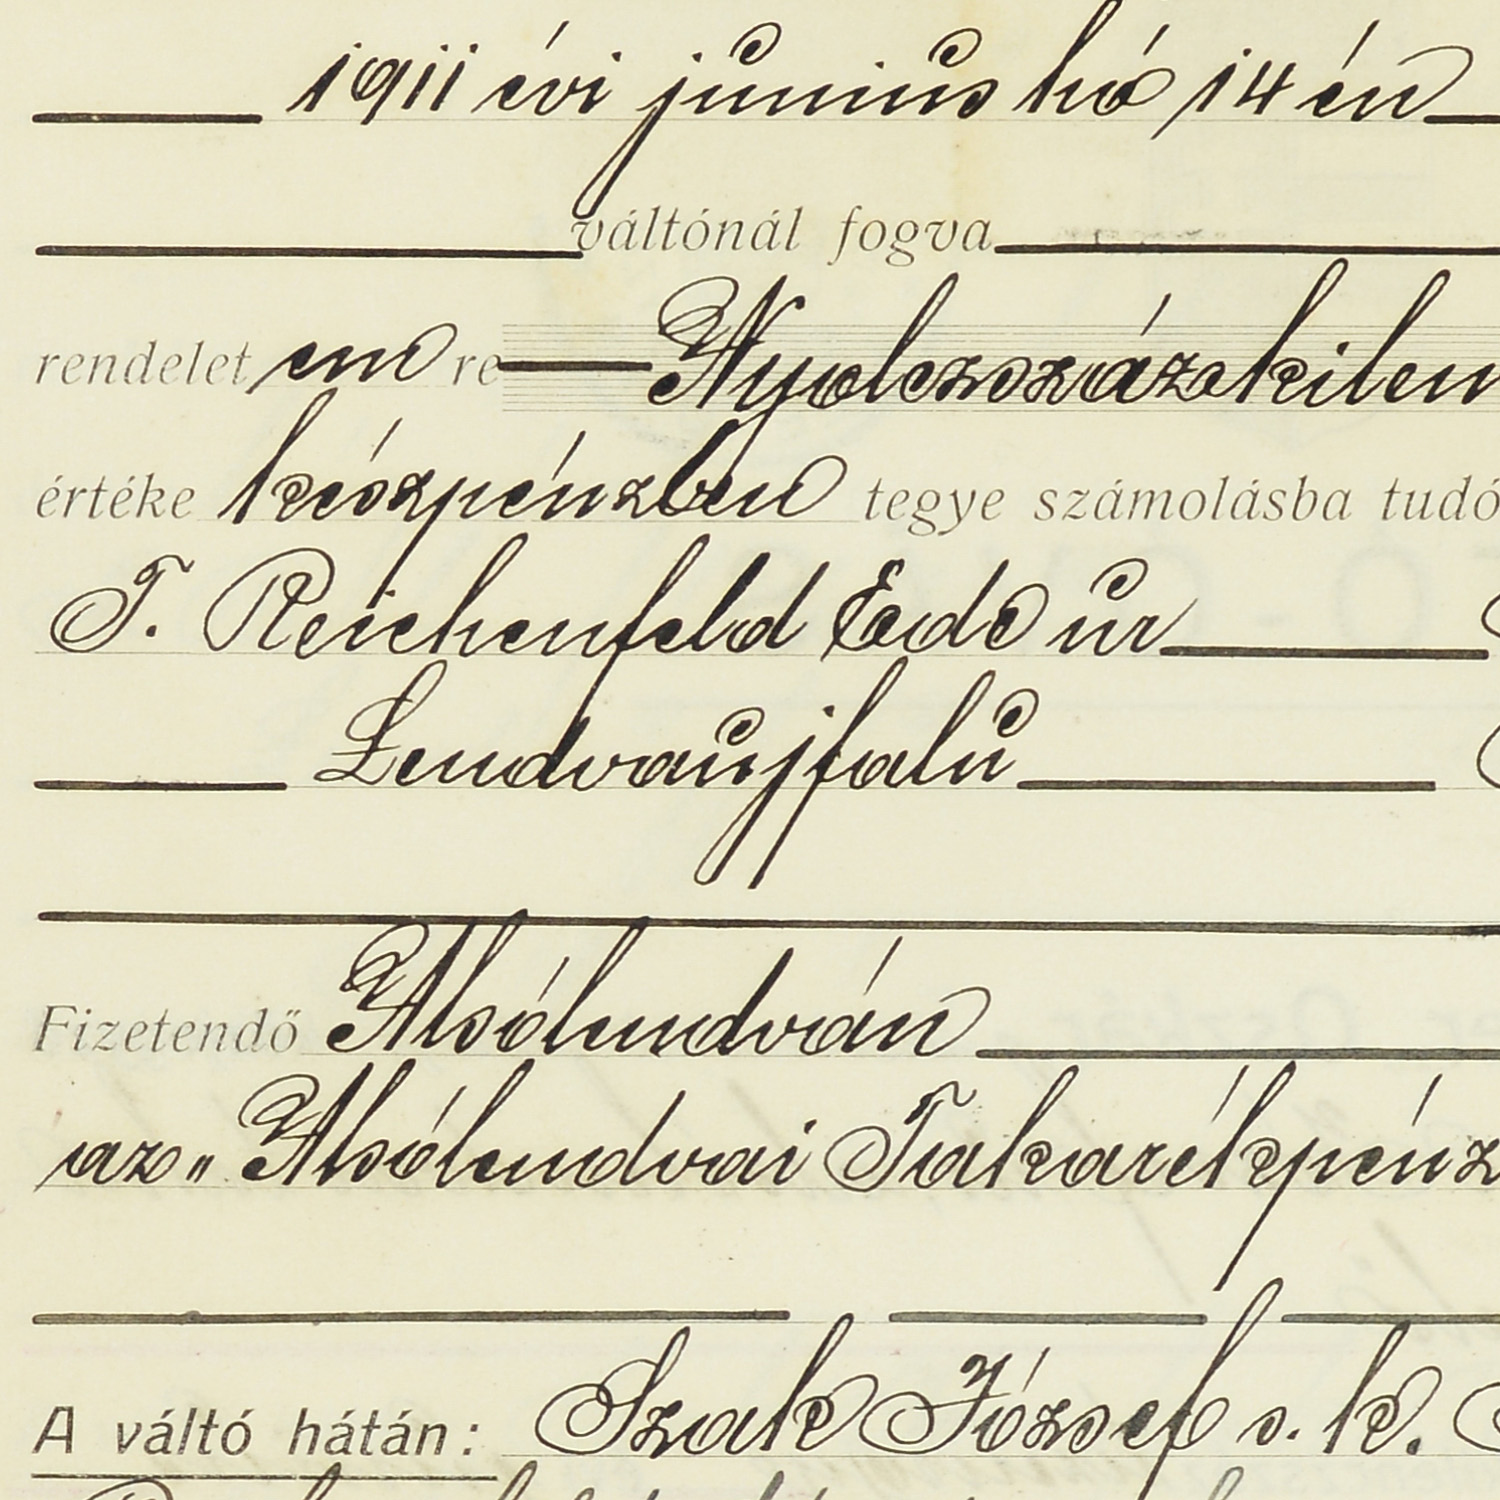 1911 évi június hó 14 én
váltónál fogva
rendelet em re Nyolczszázkilen
értéke készpénzben tegye számolásba tudó
T. Reichenfeld Ede úr
Lendvaujfalu
Fizetendő Alsólendván
az „Alsólendvai Takarékpénz
A váltó hátán: Szak József s. k.